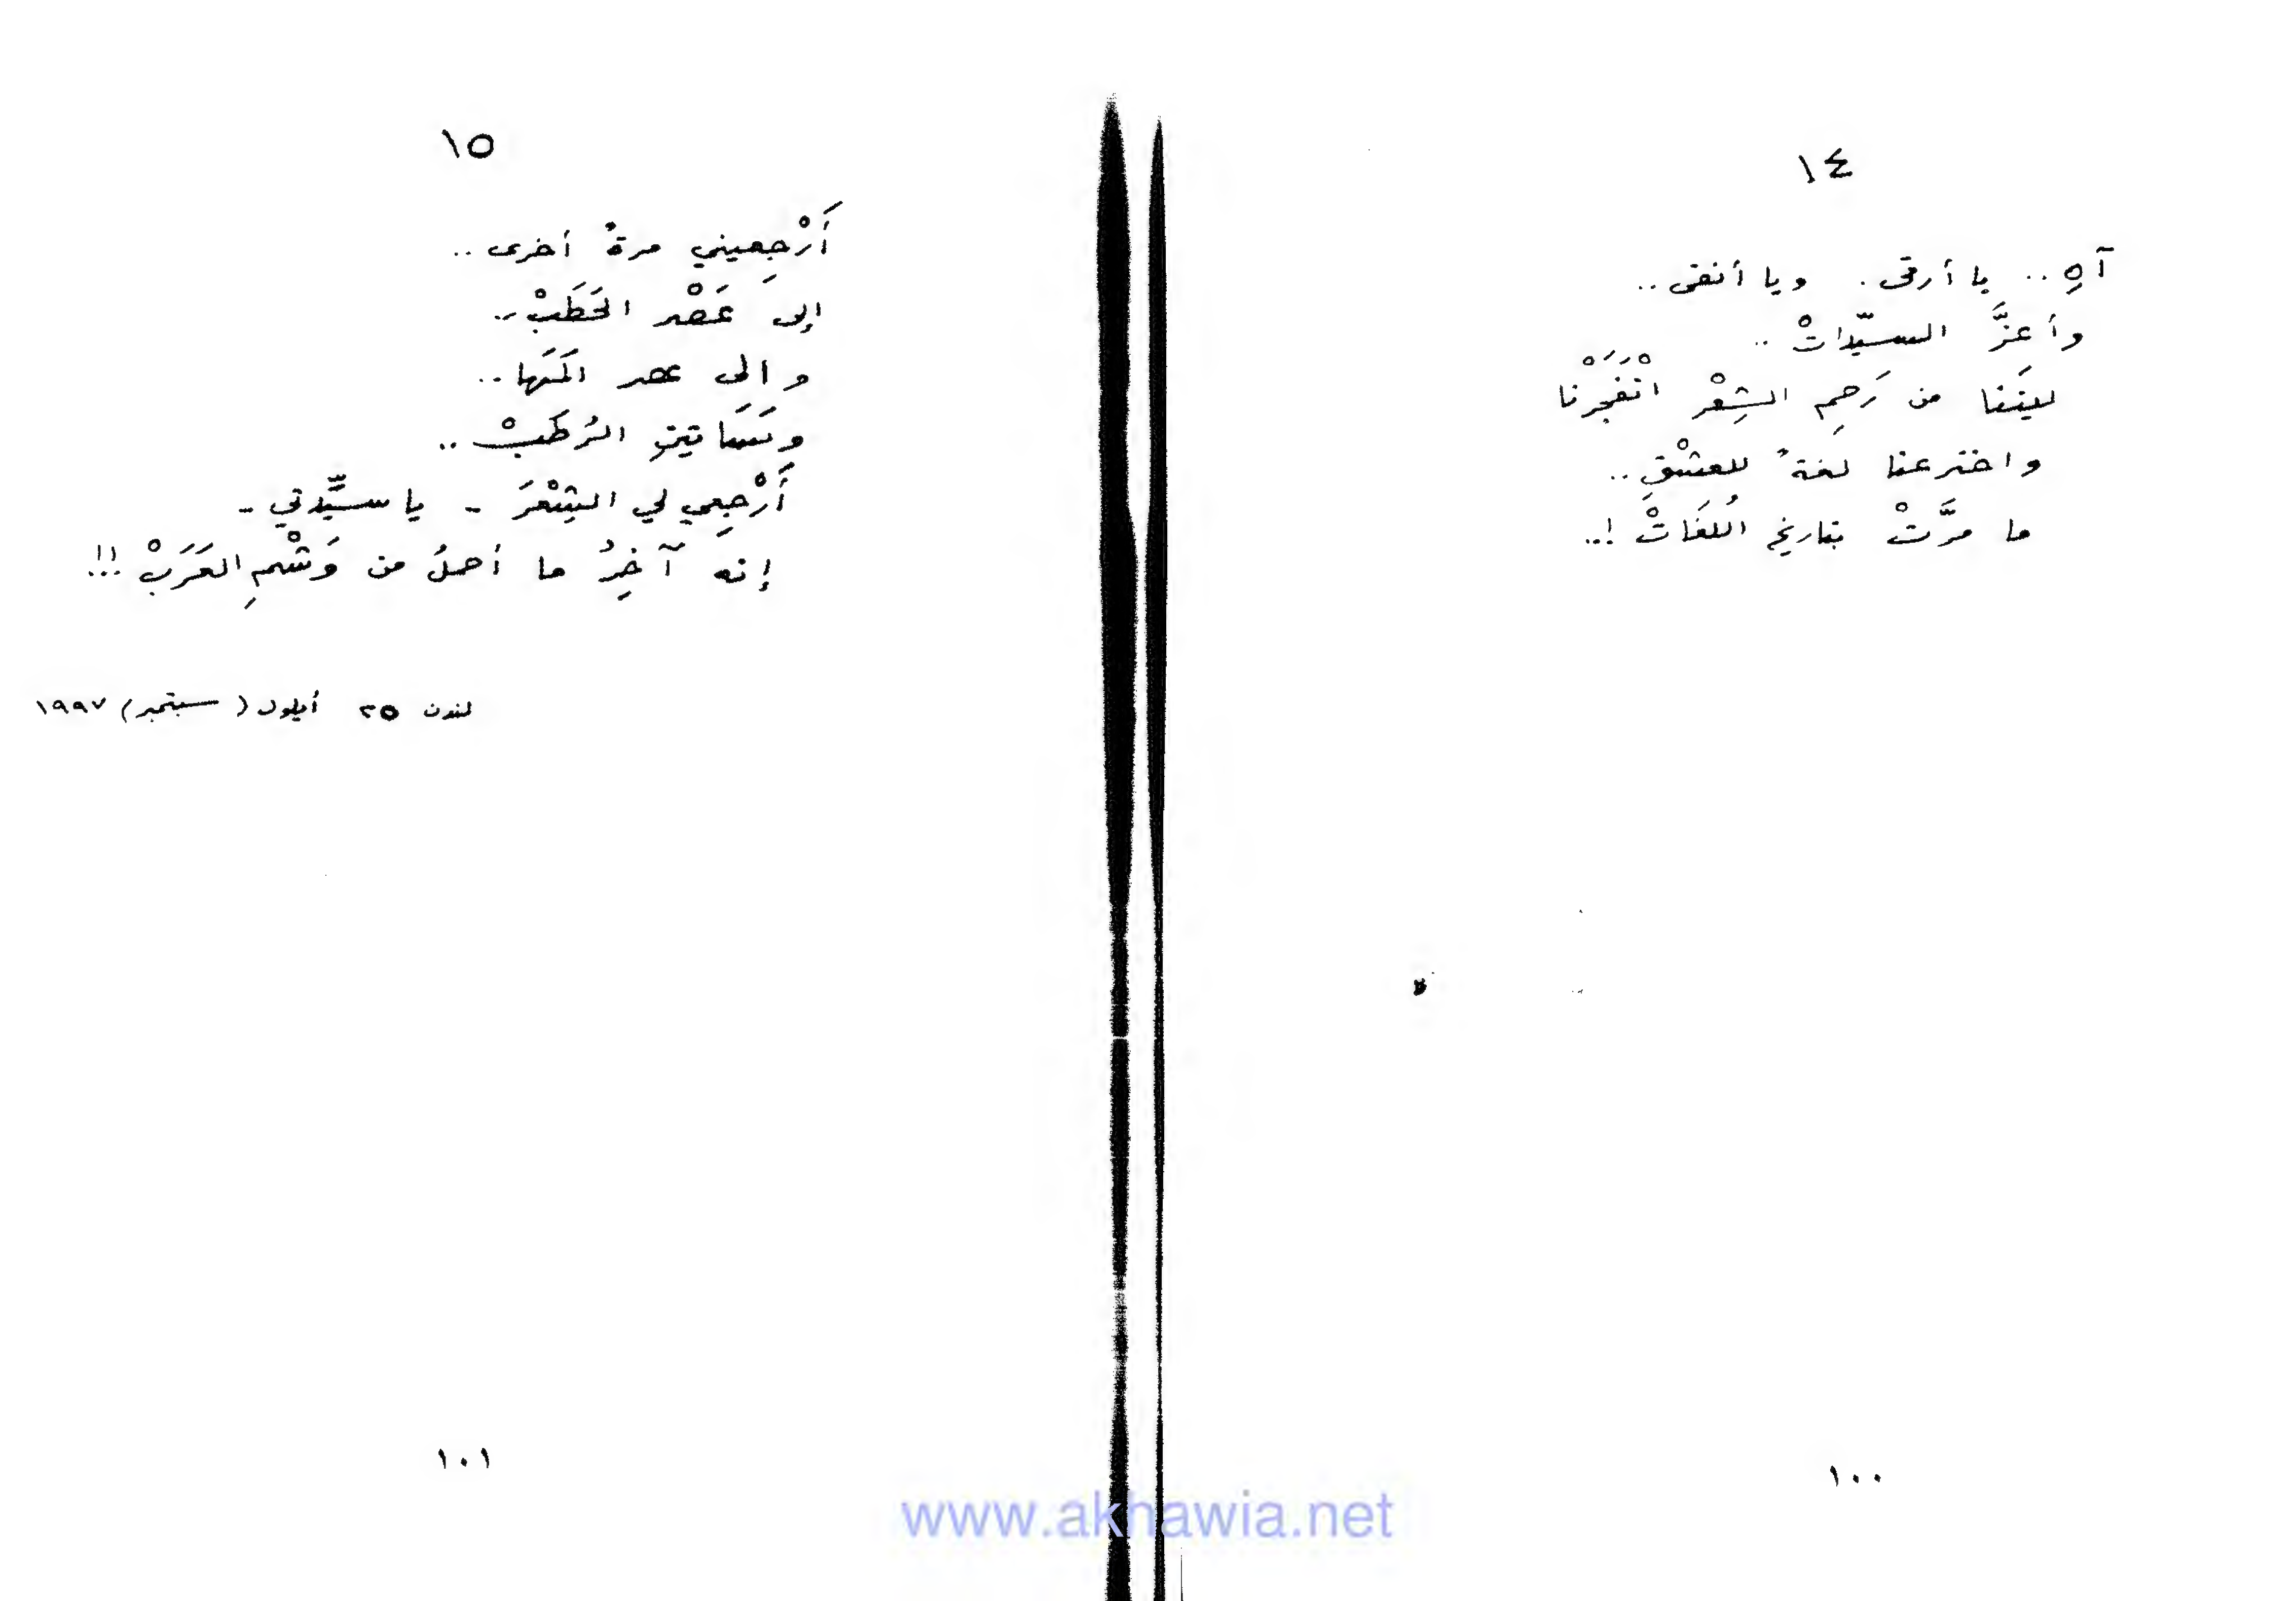 ١٤
آهِ .. يا أرقى . ويا أنقى ..
وأعزَّ السيّداتْ ..
ليتَنا من رَحِمِ الشِعْرِ انْفَجَرْنا
واخترعنا لغةً للعشْقِ ..
ما مرَّتْ بتاريخِ اللُغَاتْ !..
١٠٠
١٥
أَرْجِعيني مرةً أخرى ..
إلى عَصْرِ الحَطَبْ ..
وإلى عصر المَهَا ..
وبَسَاتينِ الرُطَبْ ..
أَرْجِعي لي الشِعْرَ - يا سيِّدتي -
إنه آخِرُ ما أحملُ من وَشْمِ العَرَبْ !!..
لندن ٢٥ أيلول (سبتمبر) ١٩٩٧
١٠١
www.akhawia.net